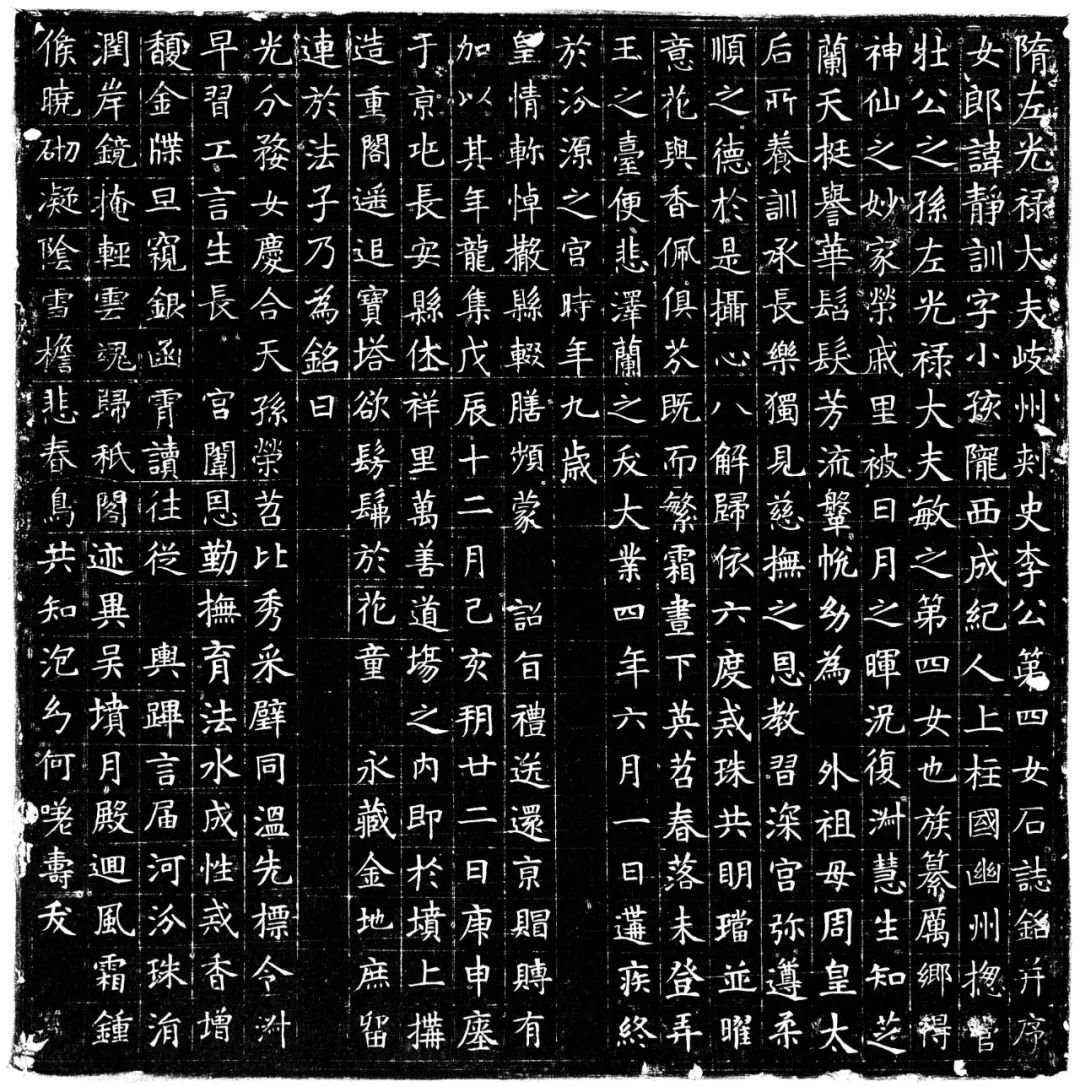 隋左光禄大夫岐州刾史李公第四女石誌銘并序
女郎諱靜訓字小孩隴西成紀人上柱國幽州揔管
壮公之孫左光禄大夫敏之第四女也族纂厲鄉得
神仙之妙家榮戚里被日月之暉況復淑慧生知芝
蘭天挺譽華髫髮芳流鞶帨幼為　外祖母周皇太
后所養訓承長樂獨見慈撫之恩教習深宮弥遵柔
順之德於是攝心八解歸依六度戒珠共明璫並曜
意花與香佩俱芬既而繁霜晝下英苕春落未登弄
玉之臺便悲澤蘭之夭大業四年六月一日遘疾終
於汾源之宮時年九歲
皇情軫悼撤縣輟膳頻蒙　詔旨禮送還京賵賻有
加以其年龍集戊辰十二月己亥朔廿二日庚申瘞
于京兆長安縣休祥里萬善道場之內即於墳上搆
造重閣遥追寶塔欲髣髴於花童　永藏金地庶留
連於法子乃為銘曰
光分婺女慶合天孫榮苕比秀采璧同溫先標令淑
早習工言生長　宮闈恩勤撫育法水成性戒香增
馥金牒旦窺銀函霄讀往從　輿蹕言届河汾珠涓
潤岸鏡掩輕雲魂歸秖閣迹異吴墳月殿迴風霜鍾
候曉砌凝陰雪檐悲春鳥共知泡幻何嗟壽夭